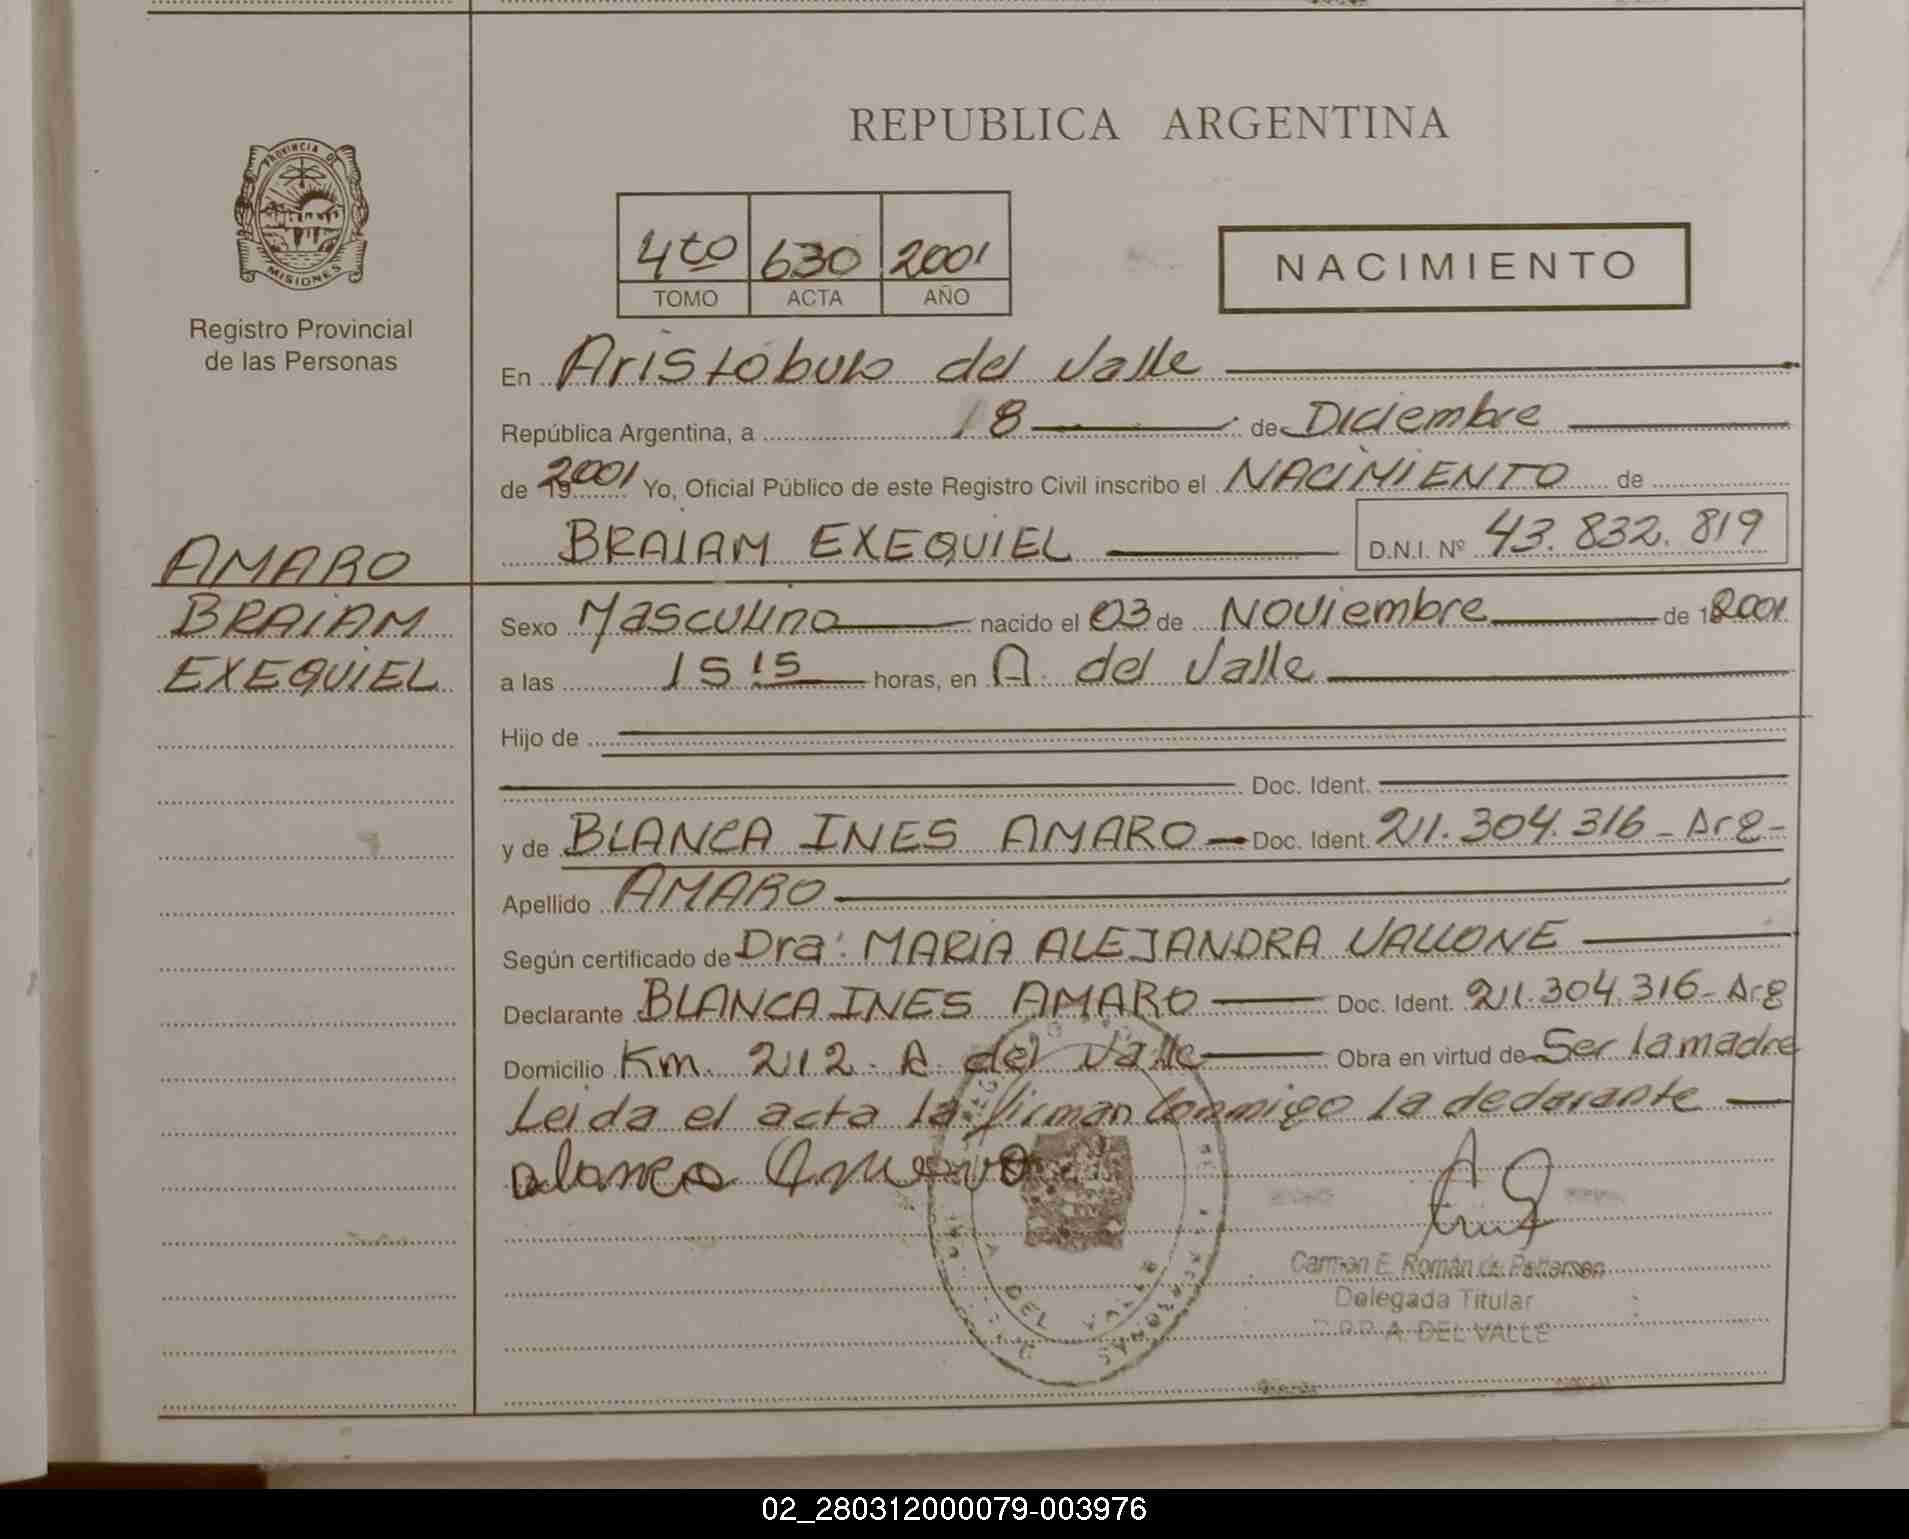 REPUBLICA ARGENTINA
PROVINCIA DE
MISIONES
Registro Provincial
de las Personas
4to 630 2001
TOMO ACTA AÑO
NACIMIENTO
En Aristóbulo del Valle
República Argentina, a 18 de Diciembre
de 2001 Yo, Oficial Público de este Registro Civil inscribo el NACIMIENTO de
BRAIAM EXEQUIEL D.N.I. Nº 43.832.819
AMARO
BRAIAM
EXEQUIEL
Sexo Masculino nacido el 03 de Noviembre de 2001
a las 15 15 horas, en A. del Valle
Hijo de
Doc. Ident.
y de BLANCA INES AMARO Doc. Ident. 21.304.316 - Arg -
Apellido AMARO
Según certificado de Dra: MARIA ALEJANDRA VALLONE
Declarante BLANCA INES AMARO Doc. Ident. 21.304.316 - Arg
Domicilio Km. 212. A. del Valle Obra en virtud de Ser la madre
Leida el acta la firman conmigo la declarante
Carmen E. Román de Pettersen
Delegada Titular
A. DEL VALLE
A DEL VALLE
02_280312000079-003976